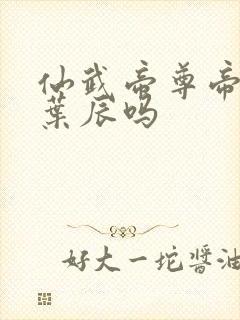 仙武帝尊帝
葉辰吗
好大一坨醬油